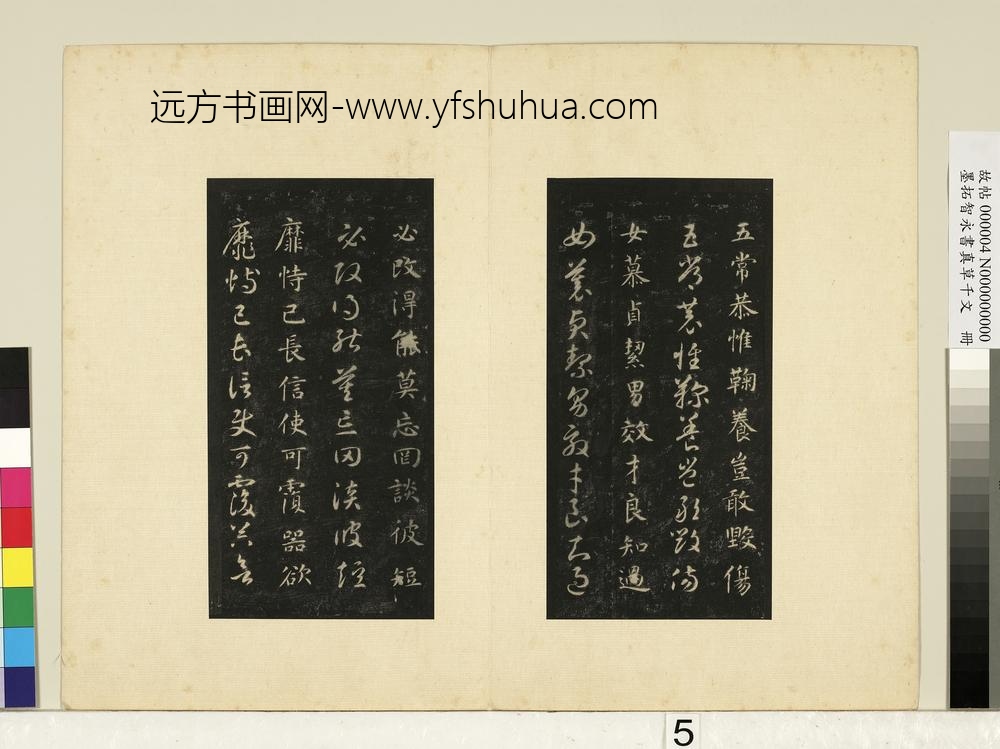 远方书画网-www.yfshuhua.com
故帖 000004 N000000000
墨拓智永書真草千文 冊
五常恭惟鞠養豈敢毀傷
五常恭惟鞠養豈敢毀傷
女慕貞絜男效才良知過
女慕貞絜男效才良知過
必改得能莫忘罔談彼短
必改得能莫忘罔談彼短
靡恃己長信使可覆器欲
靡恃己長信使可覆器欲
5